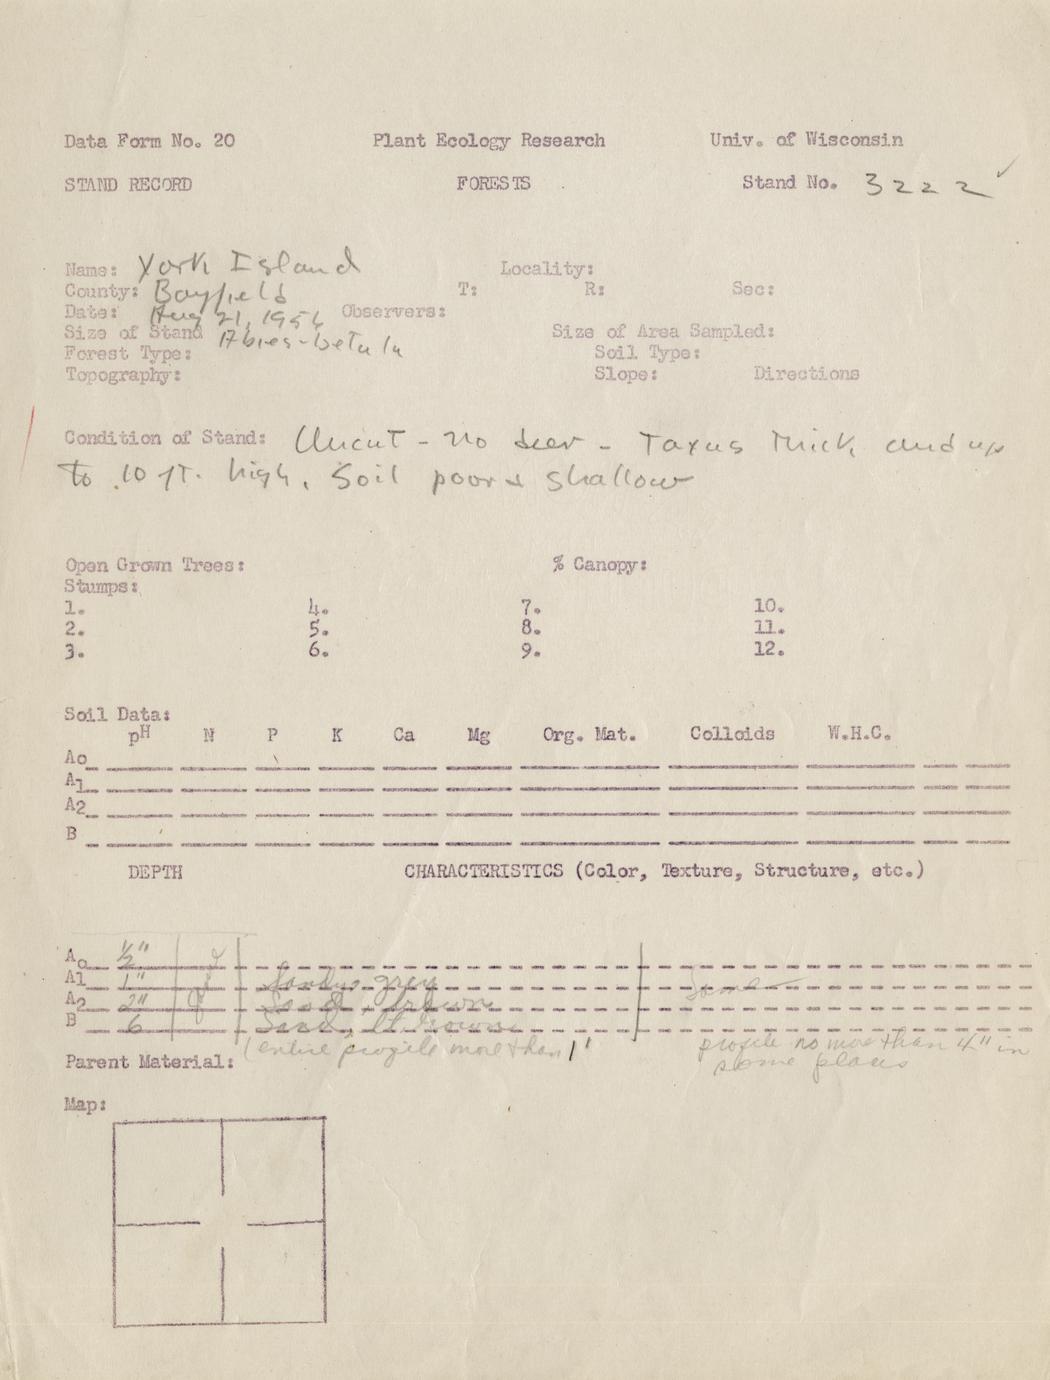 Data Form No. 20 Plant Ecology Research Univ. of Wisconsin
STAND RECORD FORESTS Stand No. 3222 ✓
Name: York Island Locality:
County: Bayfield T: R: Sec:
Date: Aug 21, 1956 Observers:
Size of Stand Size of Area Sampled:
Abies-Betula
Forest Type: Soil Type:
Topography: Slope: Directions
Condition of Stand: Uncut - no deer - Taxus thick and up
to 10 ft. high. Soil poor & shallow
Open Grown Trees: % Canopy:
Stumps:
1. 4. 7. 10.
2. 5. 8. 11.
3. 6. 9. 12.
Soil Data:
pH N P K Ca Mg Org. Mat. Colloids W.H.C.
Ao
A1
A2
B
DEPTH CHARACTERISTICS (Color, Texture, Structure, etc.)
Ao ½"
A1 1" Sandy, grey
A2 2" Sand, brown
B 6 Sand, lt brown
(entire profile more than 1' profile no more than 4" in
Parent Material: some places
Map: